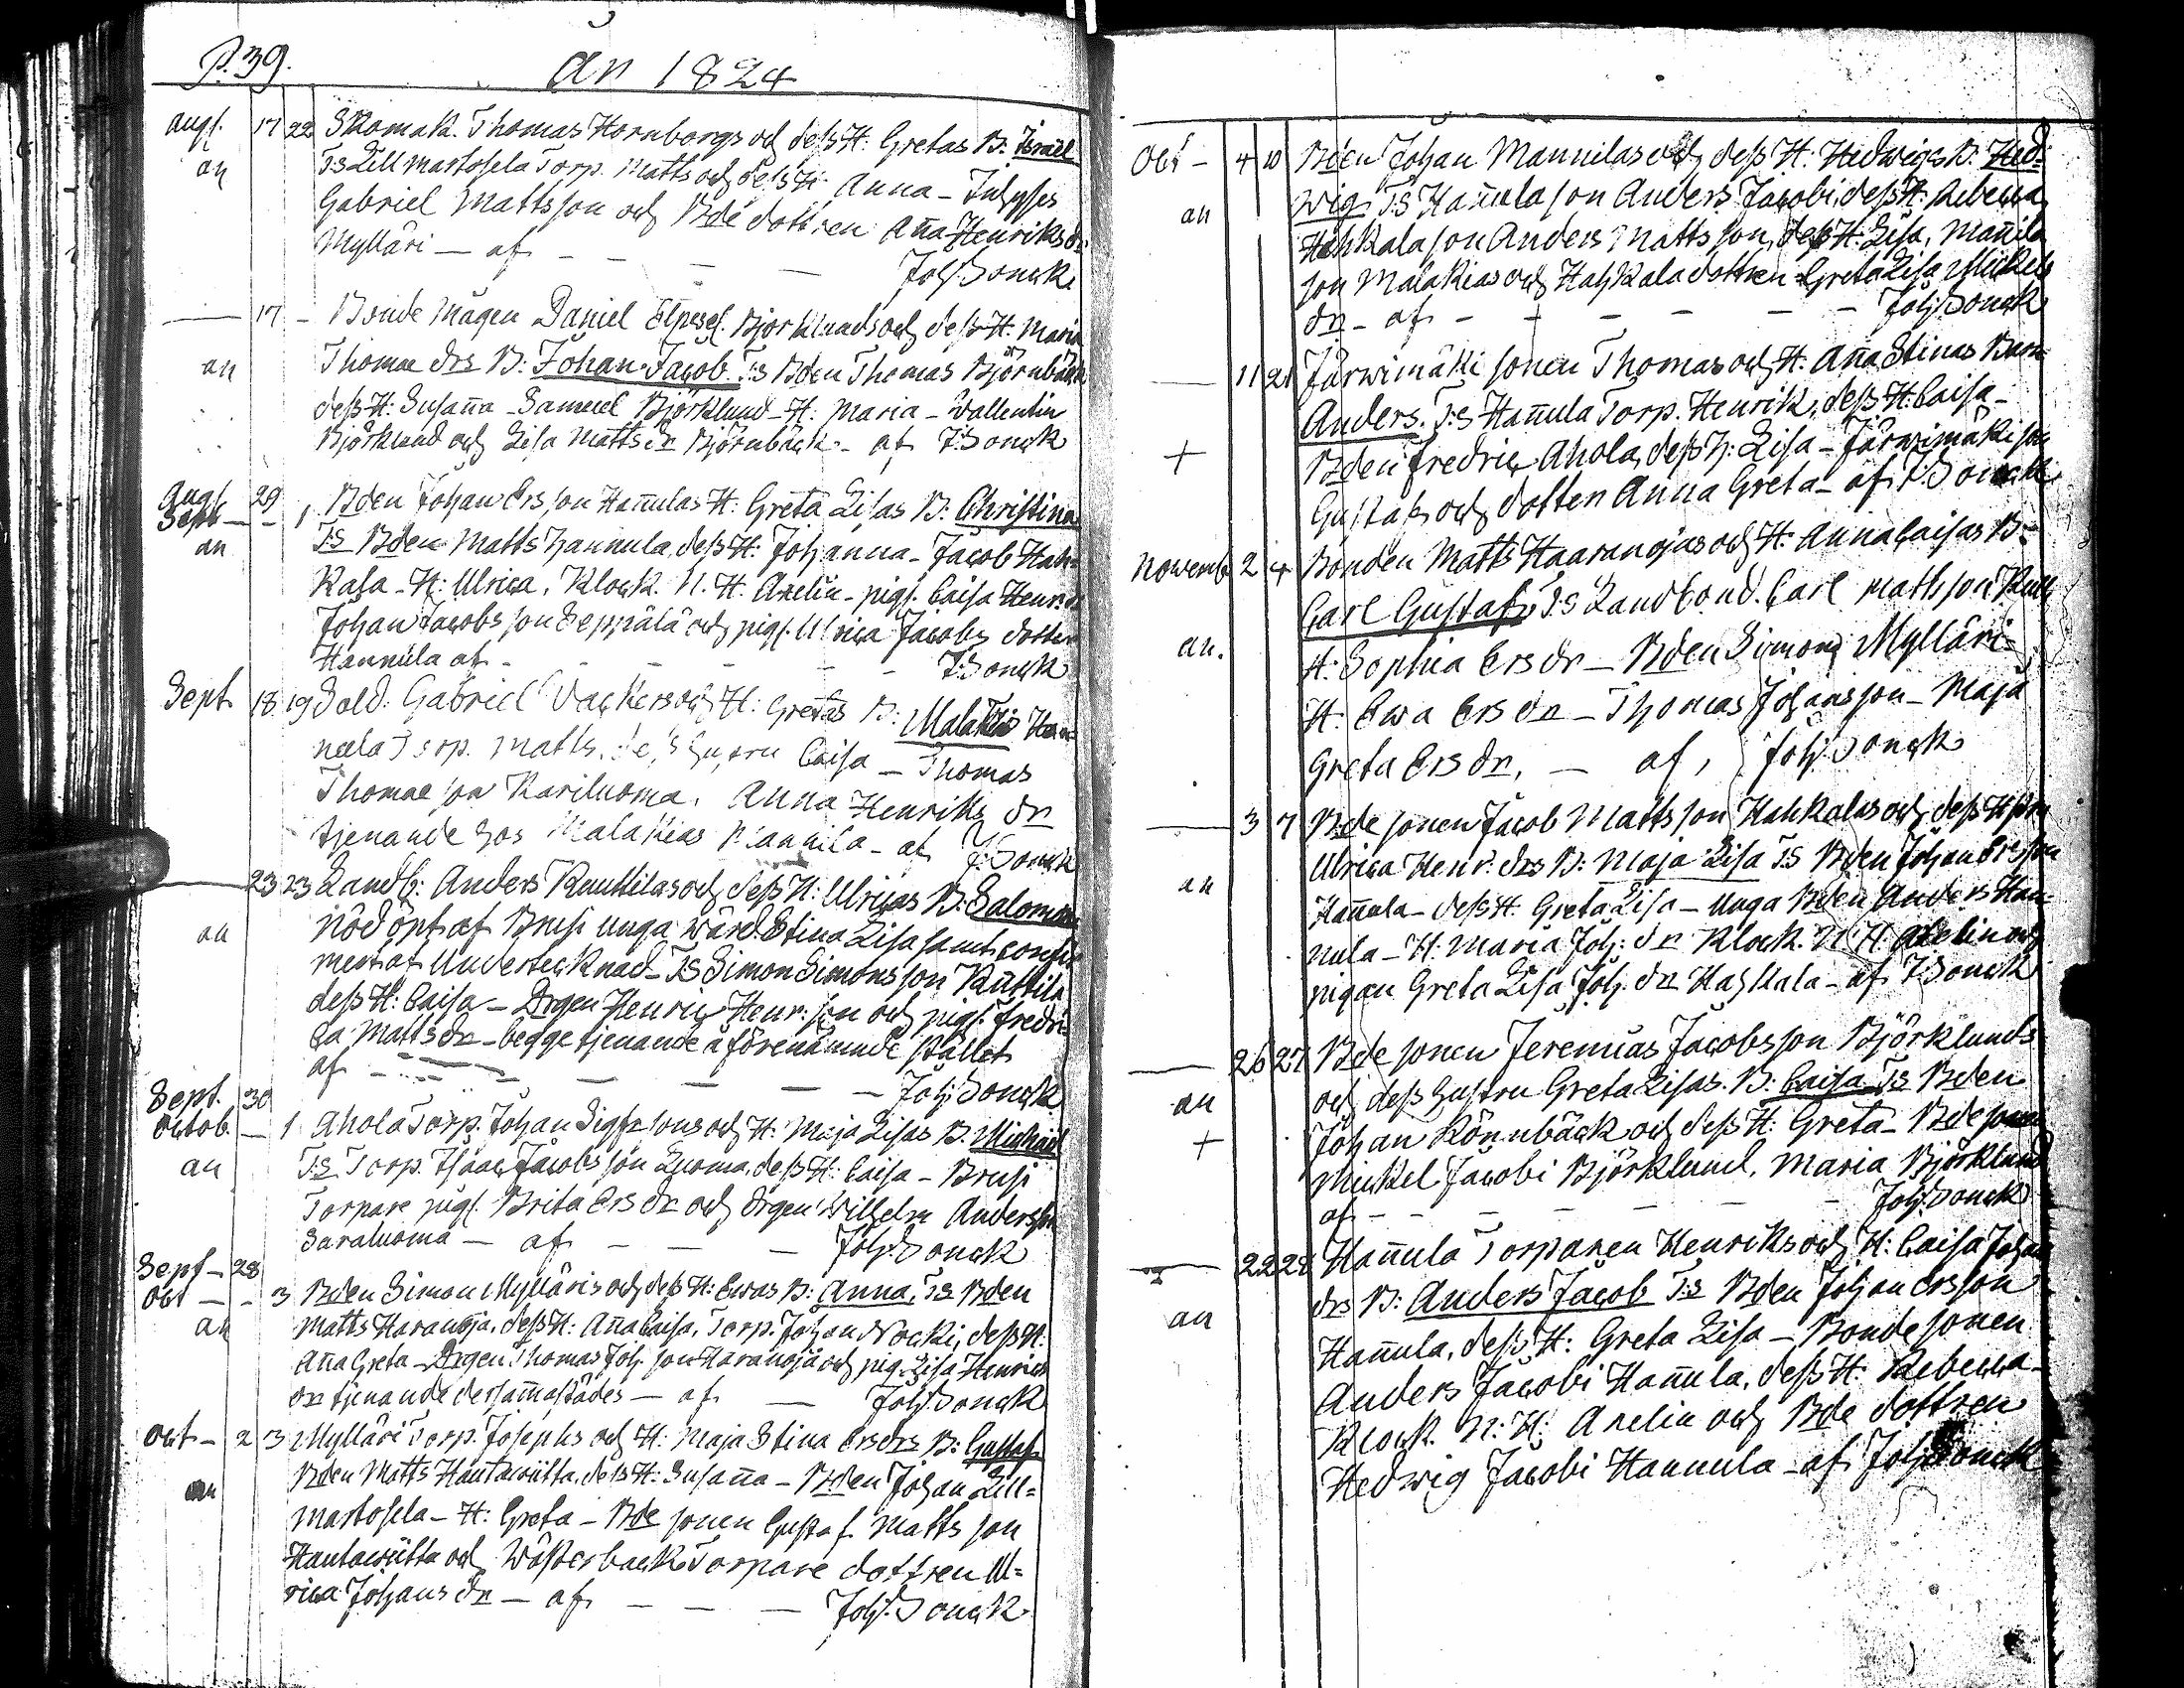 P. 39.
År 1824
Augs. 17 22 Skomak. Thomas Hornborgs och dess H: Gretas B: Israel
an T:S Lillmartosela Torp. Matts och dess H: Anna - Inhyses
Gabriel Mattsson och Bde dottren Aña Henriks dr
Mylläri - af - - - Joh: Sonck
17 - Bonde Mågen Daniel Björklunds och dess H: Maria
an Thomae drs B: Johan Jacob. T:S Bden Thomas Björnbäck
dess H: Susaña - Samuel Björklund - H: Maria - Wallentin
Björklund och Lisa Matts dr Björnbäck - af J: Sonck
Augs. 29
Sept - - 1 Bden Johan Ersson Hañulas H: Greta Lisas B: Christina
an T:S Bden Matts Hannula, dess H: Johanna - Jacob Hah-
kala - H: Ulrica, Klock. N. H. Axelin - pigs. Caisa Henr: dr
Johan Jacobsson Seppälä och pigs. Ulrica Jacobs dotter
Hannula af - - - - J: Sonck
Sept 18 19 Sold. Gabriel Vackers och H: Gretas B: Malakias Han-
nula Torp. Matts. dess hustru Caisa - Thomas
Thomae son Kariluoma, Anna Henriks dr
tjenande hos Malakias Mannila - af J: Sonck
23 23 Landb: Anders Knuttilas och dess H: Ulricas B: Salomon
an nöd öpt af Brusi unga wärd. Stina Lisa samt confir
ment af Undertecknad - T:S Simon Simonsson Kuttila
dess H: Caisa - Drgen Henric Henr: son och pigs. Fredri-
ca Matts dr - begge tjenande å förenämnde stället
af - - - - - Joh: Sonck
Sept. 30
Octob. - 1 Ahola Torp. Johan Sigfr sons och H: Maja Lisas B. Michaël
an T:S Torp. Isaac Jacobsson Luoma, dess H: Caisa - Brusi
Torpare pigs. Brita Ers dr och drgen Wilhelm Andersson
Saraluoma - af - - - Joh: Sonck
Sept - 28
Oct - - 3 Bden Simon Mylläris och dess H: Ewas B: Anna, T:S Bden
an Matts Haranoja, dess H: Aña Caisa, Torp. Johan Nocki, dess H:
Aña Greta - Drgen Thomas Joh: son Haranoja och pig. Lisa Henrics
dr tjenande dersamastädes - af - Joh: Sonck
Oct - 2 3 Mylläri Torp. Josephs och H: Maja Stina Ersdrs B: Gustaf
an Bden Matts Hautawiitta, dess H: Susaña - Bden Johan Lill=
martosela - H: Greta - Bde sonen Gustaf Matts son
Hautawiitta och Wästerbacks Torpare dottren Ul=
rica Johans dr - af - - - Joh: Sonck
Oct - 4 10 Bden Johan Mannilas och dess H: Hedwigs B: Hed=
an wig T:S Hañula son Anders Jacobi, dess H: Rebecca
Hahkala son Anders Mattsson, dess H: Lisa, Mañila
son Malakias och Hahkala dottren Greta Lisa Mickels
dr - af - - - - Joh: Sonck
11 21 Järwimäki sonen Thomas och H: Aña Stinas Barn
Anders. T:S Hañula Torp. Henrik, dess H: Caisa -
+ Bden Fredric Ahola, dess H: Lisa - Järwimäki son
Gustaf och dotter Anna Greta - af J: Sonck
Novemb 2 4 Bonden Matts Haaranojas och H: Anna Caisas B:
Carl Gustaf, T:S Landbond. Carl Mattsson
an. H: Sophia Ers dr - Bden Simon Mylläri -
H: Ewa Ers dr - Thomas Johansson - Maja
Greta Ers dr, - af, Joh: Sonck
3 7 Bde sonen Jacob Mattsson Hahkalas och dess H:
an Ulrica Henr: drs B: Maja Lisa T:S Bden Johan Ersson
Hañula - dess H: Greta Lisa - Unga Bden Anders Han-
nula - H: Maria Joh: dr Klock. N. H. Axelin och
pigan Greta Lisa Joh. dr Hahkala - af J: Sonck
26 27 Bde sonen Jeremias Jacobsson Björklunds
an och dess hustru Greta Lisas. B: Caisa T:S Bden
+ Johan Rönnbäck och dess H: Greta - Bde sonen
Mickel Jacobi Björklund, Maria Björklund
af - - - - - Joh: Sonck
22 28 Hañula Torparen Henriks och H: Caisa Johan
an drs B: Anders Jacob T:S Bden Johan Ersson
Hañula, dess H: Greta Lisa - Bonde sonen
Anders Jacobi Hañula, dess H. Rebecca -
Klock. N: H: Axelin och Bde dottren
Hedwig Jacobi Hannula - af Joh: Sonck